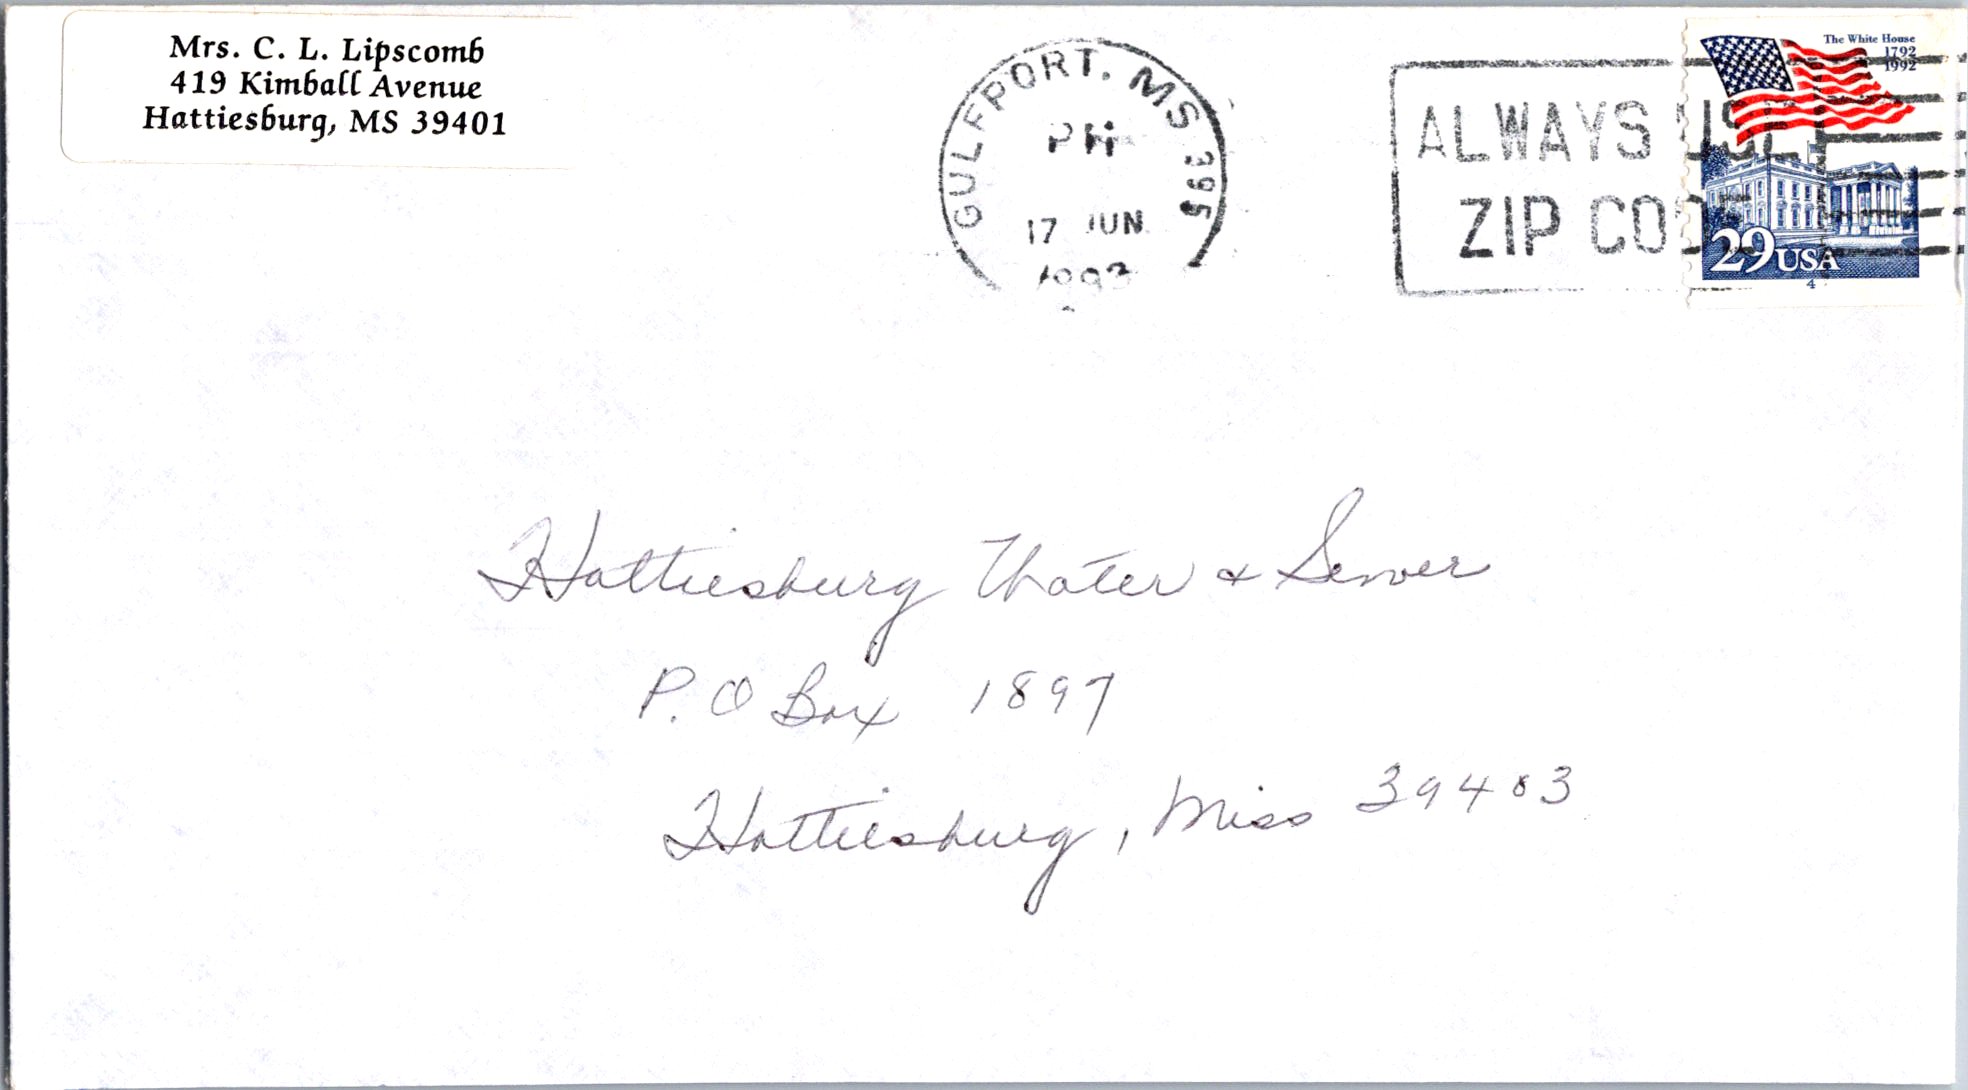 Mrs. C. L. Lipscomb
419 Kimball Avenue
Hattiesburg, MS 39401
GULFPORT, MS 395
PM
17 JUN
1993
ALWAYS USE
ZIP CO
The White House
1792
1992
29 USA
4
Hattiesburg Water & Sewer
P.O Box 1897
Hattiesburg, Miss 39403